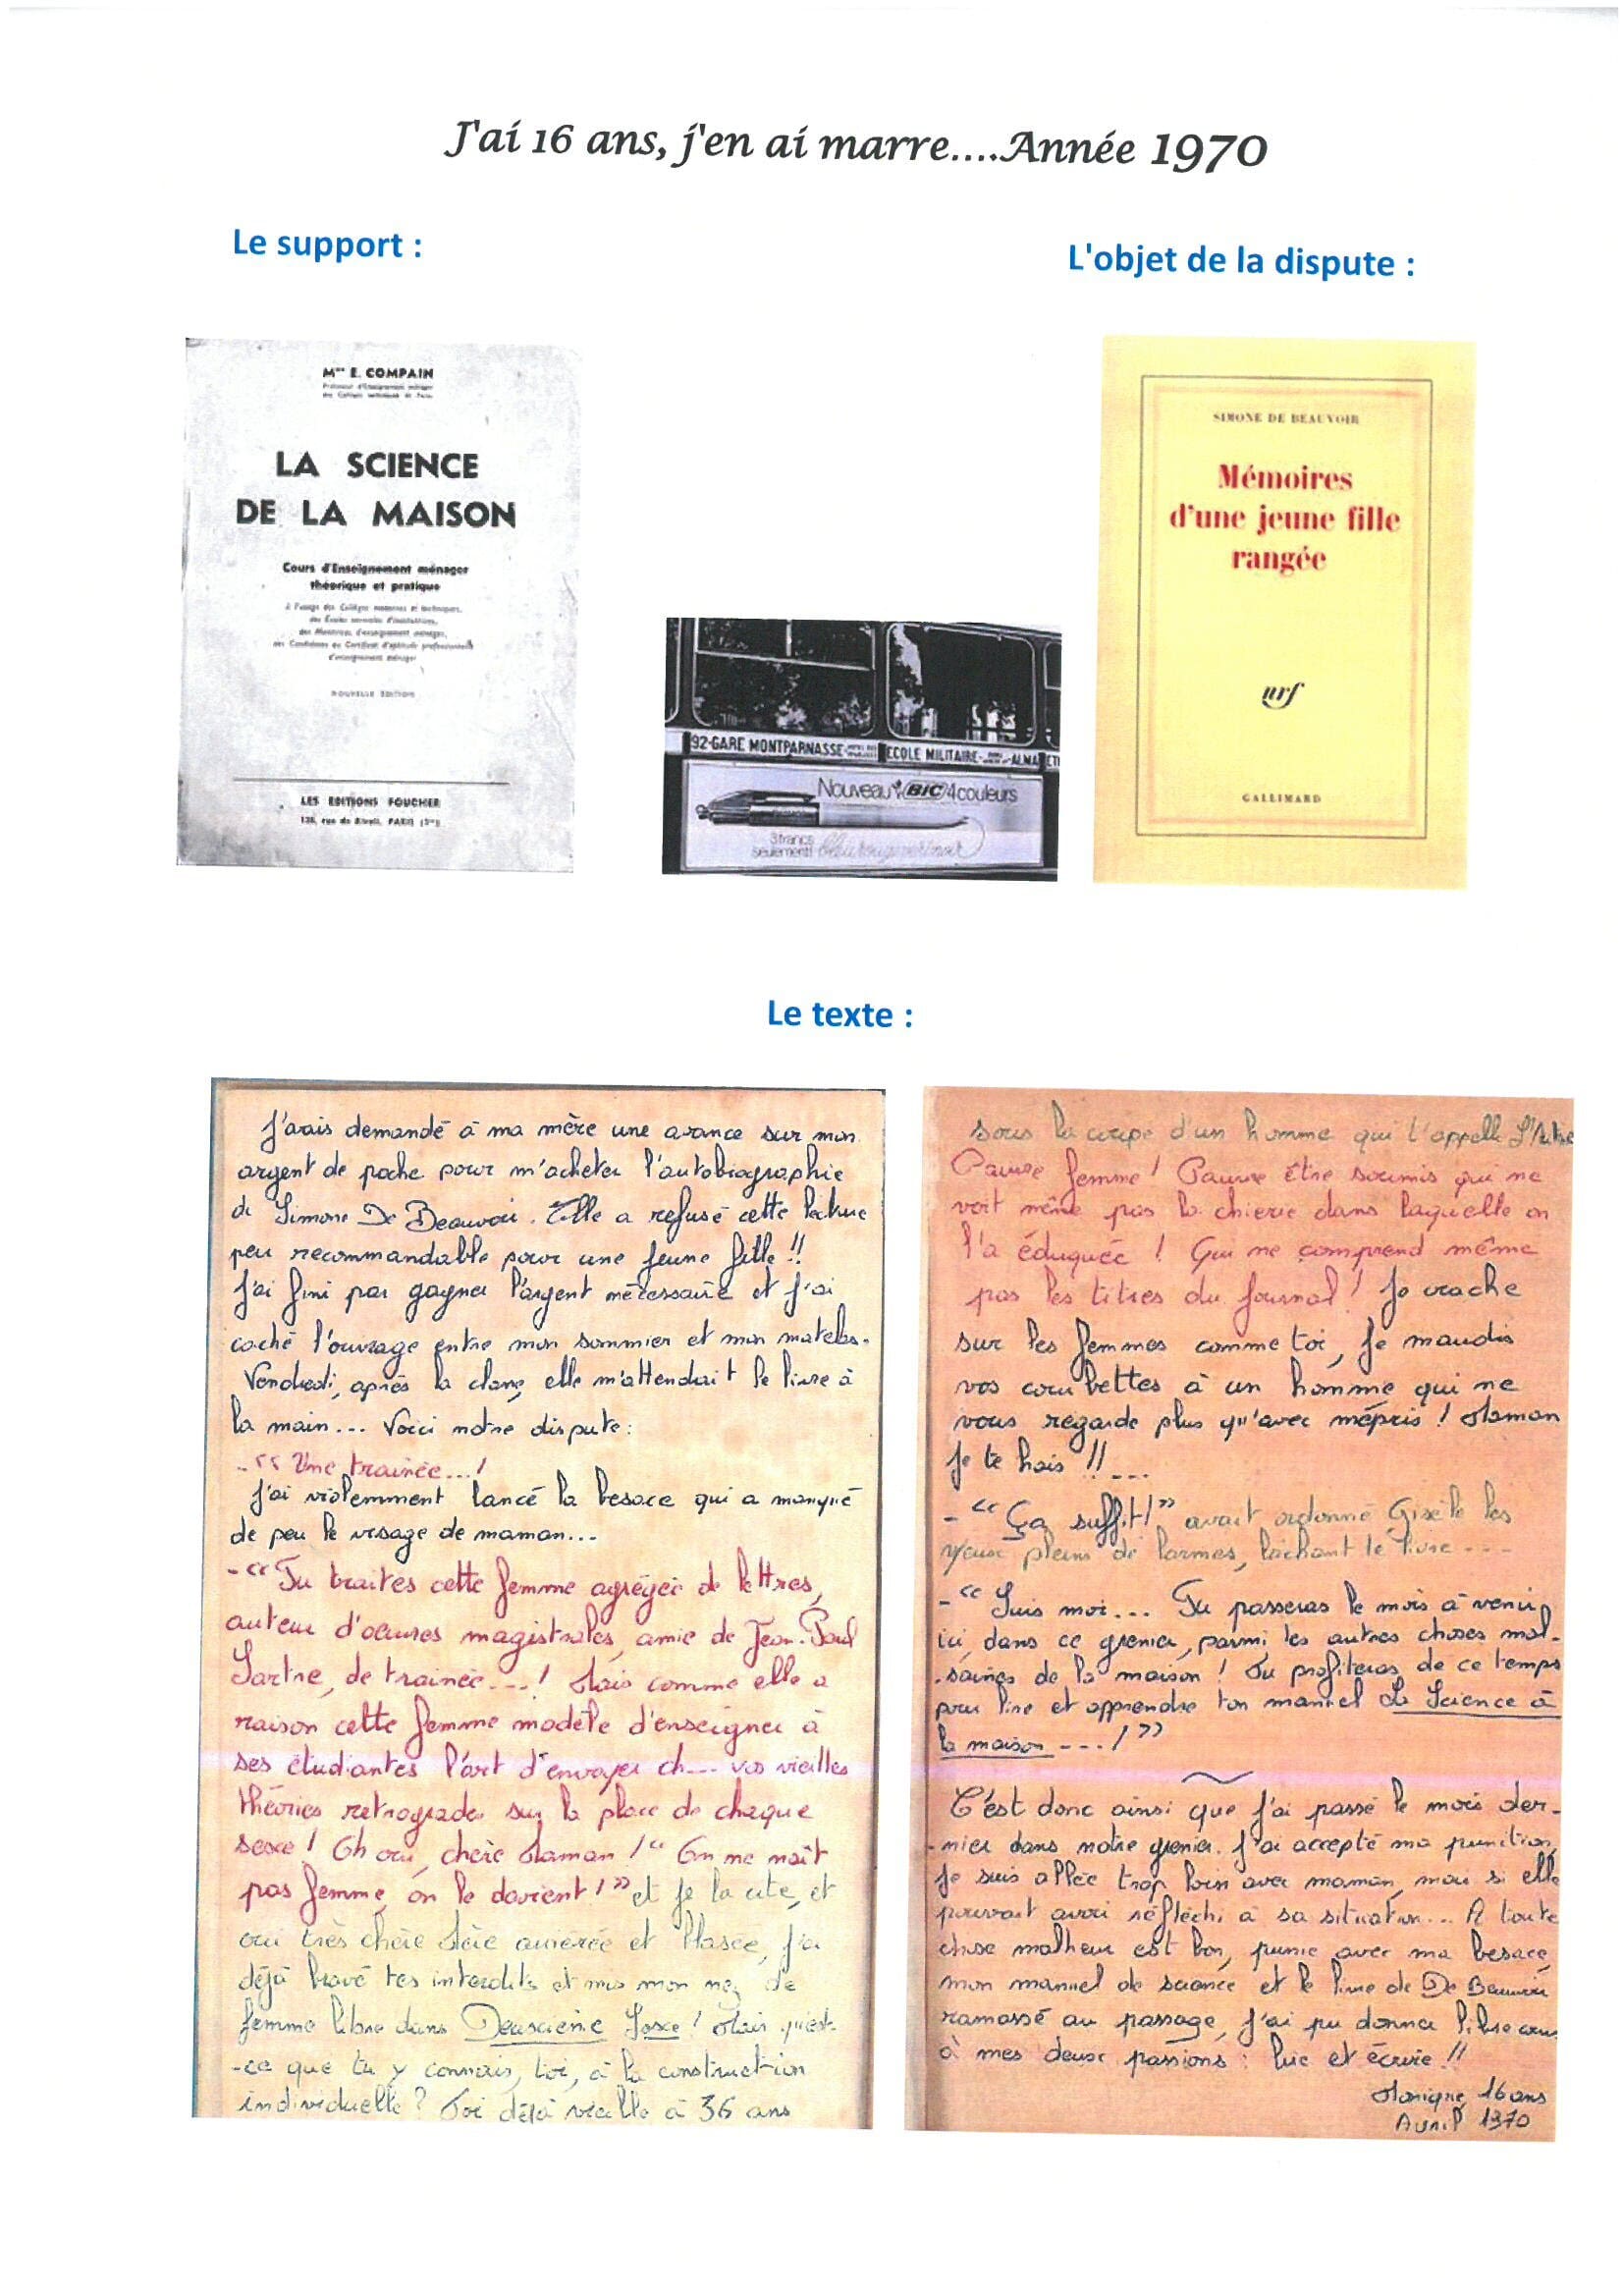 J'ai 16 ans, j'en ai marre....Année 1970
Le support :
L'objet de la dispute :
Mme E. COMPAIN
Professeur d'Enseignement ménager
des Collèges techniques de Paris
LA SCIENCE
DE LA MAISON
Cours d'Enseignement ménager
théorique et pratique
à l'usage des Collèges modernes et techniques,
des Écoles normales d'institutrices,
des Monitrices d'enseignement ménager,
des Candidates au Certificat d'aptitude professionnelle
d'enseignement ménager
NOUVELLE ÉDITION
LES EDITIONS FOUCHER
128, rue de Rivoli, PARIS (1er)
92-GARE MONTPARNASSE- ECOLE MILITAIRE- -ALMA
Nouveau BIC 4 couleurs
3 francs
seulement! bleu rouge vert noir
SIMONE DE BEAUVOIR
Mémoires
d'une jeune fille
rangée
nrf
GALLIMARD
Le texte :
J'avais demandé à ma mère une avance sur mon
argent de poche pour m'acheter l'autobiographie
de Simone De Beauvoir. Elle a refusé cette lecture
peu recommandable pour une jeune fille !!
J'ai fini par gagner l'argent nécessaire et j'ai
caché l'ouvrage entre mon sommier et mon matelas.
Vendredi, après la classe, elle m'attendait le livre à
la main... Voici notre dispute :
- " Une trainée...!
J'ai violemment lancé la besace qui a manqué
de peu le visage de maman...
- " Tu traites cette femme agrégée de lettres,
auteur d'oeuvres magistrales, amie de Jean-Paul
Sartre, de trainée...! Mais comme elle a
raison cette femme modèle d'enseigner à
ses étudiantes l'art d'envoyer ch... vos vieilles
théories retrogrades sur la place de chaque
sexe ! Oh oui, chère Maman ! " On ne naît
pas femme, on le devient ! " et je la cite, et
oui très chère Mère aigrée et blasée, j'ai
déjà bravé tes interdits et mis mon nez de
femme libre dans Deuxième Sexe ! Mais qu'est-
-ce que tu y connais, toi, à la construction
individuelle ? Toi déjà vieille à 36 ans
sous la coupe d'un homme qui t'appelle L'Autre
Pauvre femme ! Pauvre être soumis qui ne
voit même pas la chierie dans laquelle on
l'a éduquée ! Qui ne comprend même
pas les titres du journal ! Je crache
sur les femmes comme toi, je maudis
vos courbettes à un homme qui ne
vous regarde plus qu'avec mépris ! Maman
je te hais !! ...
- " Ça suffit ! " avait ordonné Gisèle les
yeux pleins de larmes, lâchant le livre ...
- " Suis moi... Tu passeras le mois à venir
ici, dans ce grenier, parmi les autres choses mal-
-saines de la maison ! Tu profiteras de ce temps
pour lire et apprendre ton manuel La Science à
la maison ...! "
C'est donc ainsi que j'ai passé le mois der-
-nier dans notre grenier. J'ai accepté ma punition,
je suis allée trop loin avec maman, mais si elle
pouvait avoir réfléchi à sa situation... A toute
chose malheur est bon, punie avec ma besace,
mon manuel de science et le livre de De Beauvoir
ramassé au passage, j'ai pu donner libre cours
à mes deux passions : lire et écrire !!
16 ans
Avril 1970